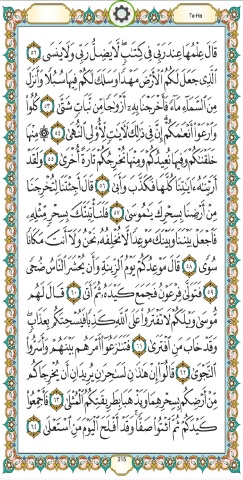 Ta Ha
قَالَ عِلْمُهَا عِندَ رَبِّى فِى كِتَـٰبٍ ۖ لَّا يَضِلُّ رَبِّى وَلَا يَنسَى ٥٢
ٱلَّذِى جَعَلَ لَكُمُ ٱلْأَرْضَ مَهْدًا وَسَلَكَ لَكُمْ فِيهَا سُبُلًا وَأَنزَلَ
مِنَ ٱلسَّمَآءِ مَآءً فَأَخْرَجْنَا بِهِۦٓ أَزْوَٰجًا مِّن نَّبَاتٍ شَتَّىٰ ٥٣ كُلُوا۟
وَٱرْعَوْا۟ أَنْعَـٰمَكُمْ ۗ إِنَّ فِى ذَٰلِكَ لَـَٔايَـٰتٍ لِّأُو۟لِى ٱلنُّهَىٰ ٥٤ ۞ مِنْهَا
خَلَقْنَـٰكُمْ وَفِيهَا نُعِيدُكُمْ وَمِنْهَا نُخْرِجُكُمْ تَارَةً أُخْرَىٰ ٥٥ وَلَقَدْ
أَرَيْنَـٰهُ ءَايَـٰتِنَا كُلَّهَا فَكَذَّبَ وَأَبَىٰ ٥٦ قَالَ أَجِئْتَنَا لِتُخْرِجَنَا
مِنْ أَرْضِنَا بِسِحْرِكَ يَـٰمُوسَىٰ ٥٧ فَلَنَأْتِيَنَّكَ بِسِحْرٍ مِّثْلِهِۦ
فَٱجْعَلْ بَيْنَنَا وَبَيْنَكَ مَوْعِدًا لَّا نُخْلِفُهُۥ نَحْنُ وَلَآ أَنتَ مَكَانًا
سُوًى ٥٨ قَالَ مَوْعِدُكُمْ يَوْمُ ٱلزِّينَةِ وَأَن يُحْشَرَ ٱلنَّاسُ ضُحًى
٥٩ فَتَوَلَّىٰ فِرْعَوْنُ فَجَمَعَ كَيْدَهُۥ ثُمَّ أَتَىٰ ٦٠ قَالَ لَهُم
مُّوسَىٰ وَيْلَكُمْ لَا تَفْتَرُوا۟ عَلَى ٱللَّهِ كَذِبًا فَيُسْحِتَكُم بِعَذَابٍ ۖ
وَقَدْ خَابَ مَنِ ٱفْتَرَىٰ ٦١ فَتَنَـٰزَعُوٓا۟ أَمْرَهُم بَيْنَهُمْ وَأَسَرُّوا۟
ٱلنَّجْوَىٰ ٦٢ قَالُوٓا۟ إِنْ هَـٰذَٰنِ لَسَـٰحِرَٰنِ يُرِيدَانِ أَن يُخْرِجَاكُم
مِّنْ أَرْضِكُم بِسِحْرِهِمَا وَيَذْهَبَا بِطَرِيقَتِكُمُ ٱلْمُثْلَىٰ ٦٣ فَأَجْمِعُوا۟
كَيْدَكُمْ ثُمَّ ٱئْتُوا۟ صَفًّا ۚ وَقَدْ أَفْلَحَ ٱلْيَوْمَ مَنِ ٱسْتَعْلَىٰ ٦٤
315